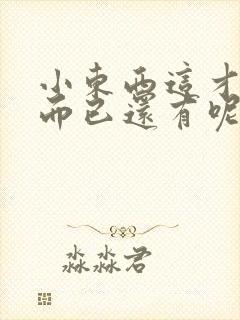 小東西這才
而已還有呢
淼淼君